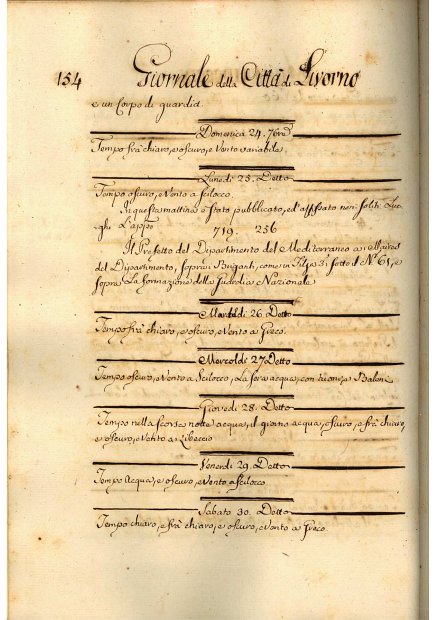 154 Giornale della Città di Livorno
e un Corpo di guardia.
Domenica 24. 7bre
Tempo frà chiaro, e oscuro, e Vento variabile.
Lunedi 25. Detto
Tempo oscuro, e Vento a Scilocco.
In questa mattina è stato pubblicato, ed affissato nei soliti Luo
ghi L'appo
719. 256
Il Prefetto del Dipartimento del Mediterraneo a i Maires
del Dipartimento, sopra i Briganti, come in Filza 3ª sotto il Nº 61, e
sopra La formazione della Guardia Nazionale
Martedi 26. Detto
Tempo frà chiaro, e oscuro, e Vento a Greco.
Mercoldi 27 Detto
Tempo oscuro, e Vento a Scilocco, La sera acqua, con tuoni, e Baleni
Giovedi 28. Detto
Tempo nella scorsa notte acqua, il giorno acqua, oscuro, e frà chiaro,
e oscuro, e Vento a Libeccio
Venerdi 29. Detto
Tempo Acqua, e oscuro, e Vento a Scilocco.
Sabato 30. Detto
Tempo chiaro, e frà chiaro, e oscuro, e Vento a Greco.